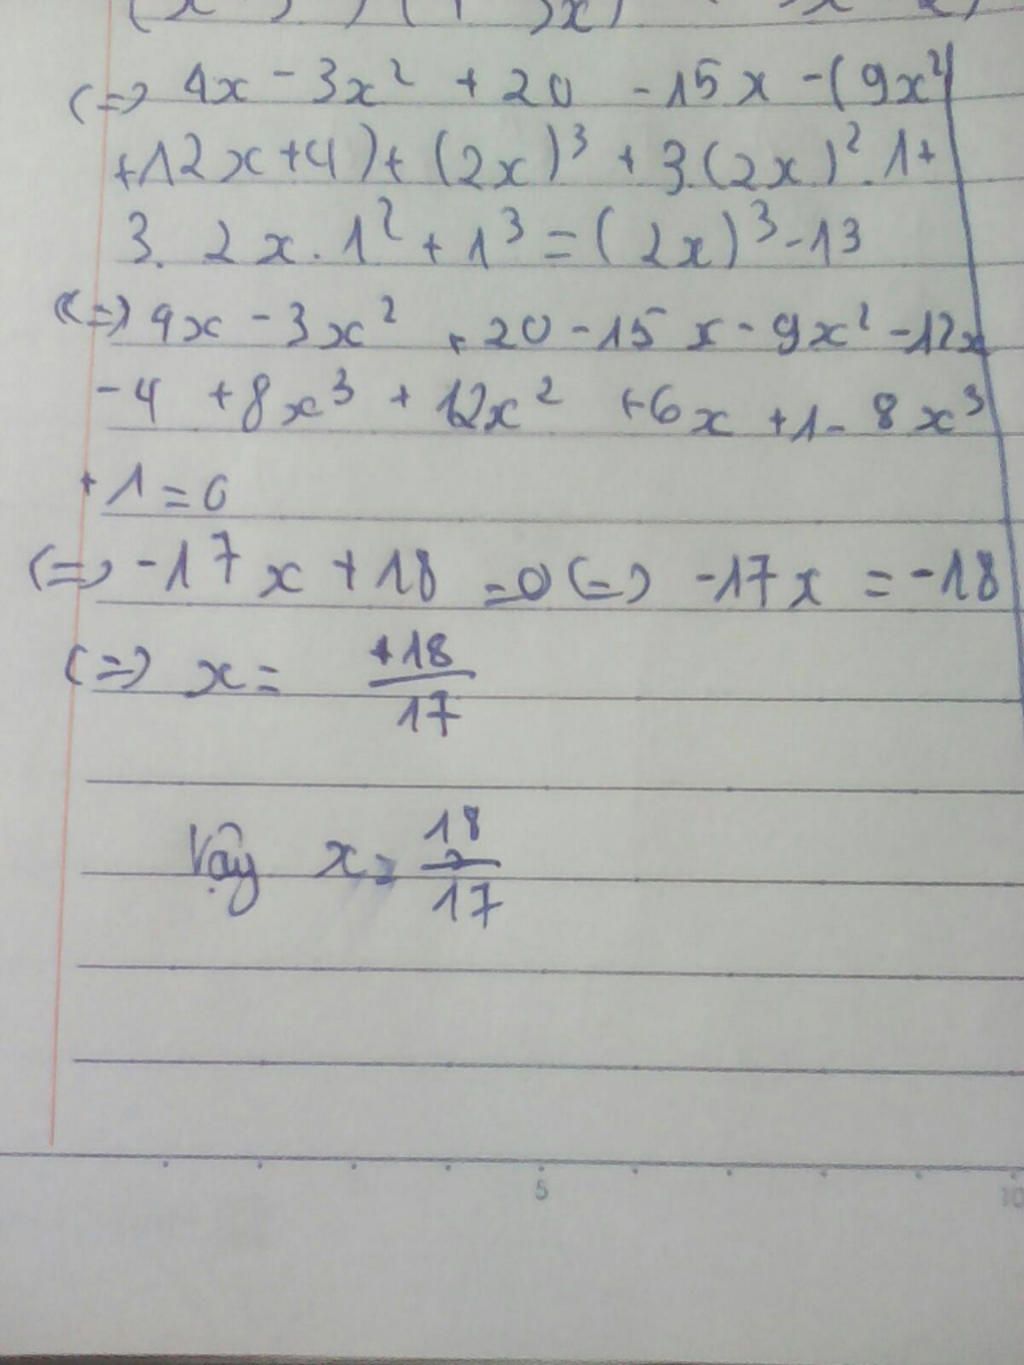 (=) 4x - 3x² + 20 - 15x - (9x²
+ 12x + 4) + (2x)³ + 3.(2x)².1 +
3. 2x . 1² + 1³ = (2x)³ - 13
(=) 4x - 3x² + 20 - 15x - 9x² - 12x
- 4 + 8x³ + 12x² + 6x + 1 - 8x³
+ 1 = 0
(=) -17x + 18 = 0 (=) -17x = -18
(=) x = +18/17
Vậy x = 18/17
5
10